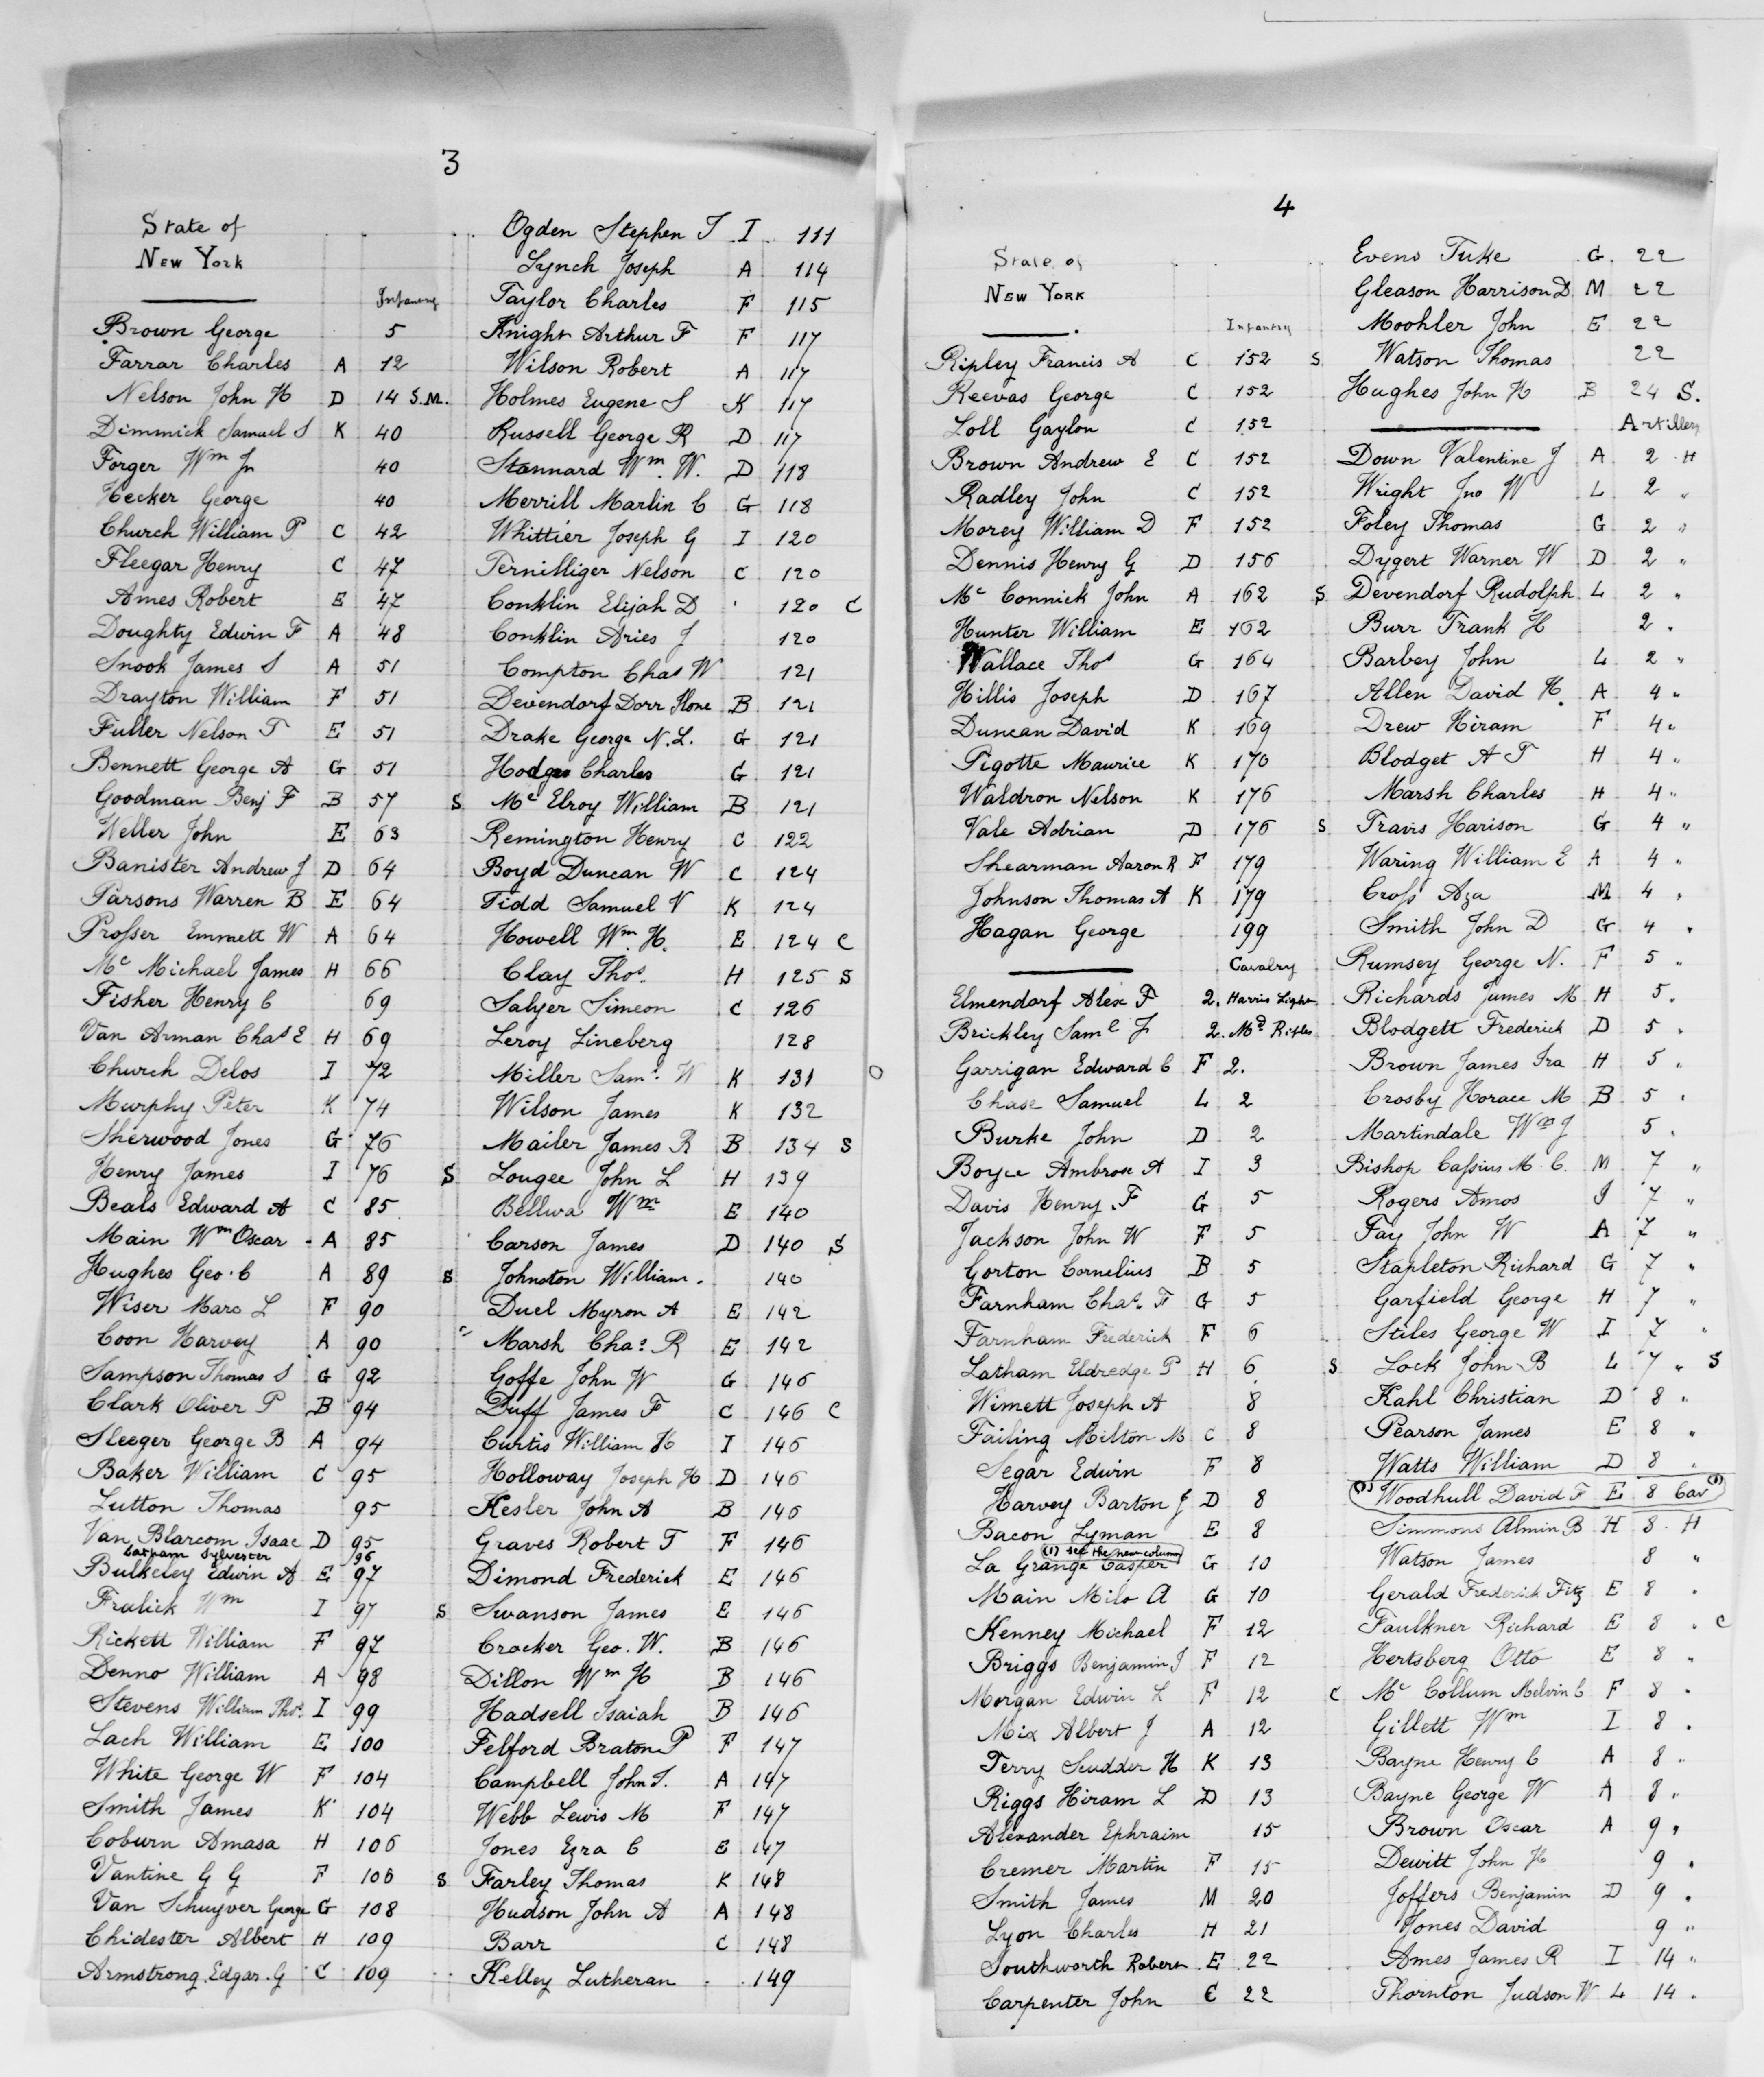 3
State of
New York
Infantry
Brown George 5
Farrar Charles A 12
Nelson John H D 14 S.M.
Dimmick Samuel S K 40
Forger Wm Jn 40
Hecker George 40
Church William P C 42
Fleegar Henry C 47
Ames Robert E 47
Doughty Edwin F A 48
Snook James S A 51
Drayton William F 51
Fuller Nelson T E 51
Bennett George A G 51
Goodman Benj F B 57
Weller John E 63
Banister Andrew J D 64
Parsons Warren B E 64
Prosser Emmett W A 64
Mc Michael James H 66
Fisher Henry C 69
Van Arman Chas E H 69
Church Delos I 72
Murphy Peter K 74
Sherwood Jones G 76
Henry James I 76
Beals Edward A C 85
Main Wm Oscar - A 85
Hughes Geo. C A 89
Wiser Marc L F 90
Coon Harvey A 90
Sampson Thomas S G 92
Clark Oliver P B 94
Sleeger George B A 94
Baker William C 95
Lutton Thomas 95
Van Blarcom Isaac D 95
Latham Sylvester 96
Bulkeley Edwin A E 97
Fralick Wm I 97
Rickett William F 97
Denno William A 98
Stevens William Thos. I 99
Lach William E 100
White George W F 104
Smith James K 104
Coburn Amasa H 106
Vantine G G F 106
Van Schuyver George G 108
Chidester Albert H 109
Armstrong Edgar. G C 109
Ogden Stephen T I 111
Lynch Joseph A 114
Taylor Charles F 115
Knight Arthur F F 117
Wilson Robert A 117
Holmes Eugene S K 117
Russell George R D 117
Stannard Wm. W. D 118
Merrill Marlin C G 118
Whittier Joseph G I 120
Ternilliger Nelson C 120
Conklin Elijah D 120 C
Conklin Aries J 120
Compton Chas W 121
Devendorf Dorr Hone B 121
Drake George N. L. G 121
Hodges Charles G 121
S Mc Elroy William B 121
Remington Henry C 122
Boyd Duncan W C 124
Tidd Samuel V K 124
Howell Wm. H. E 124 C
Clay Thos. H 125 S
Salyer Simeon C 126
Leroy Lineberg 128
Miller Saml. W K 131
Wilson James K 132
Mailer James R B 134 S
S Lougee John L H 139
Bellwa Wm E 140
Carson James D 140 S
S Johnston William. 140
Duel Myron A E 142
Marsh Chas. R E 142
Goffe John W G 146
Duff James F C 146 C
Curtis William H I 146
Holloway Joseph H D 146
Kesler John A B 146
Graves Robert T F 146
Dimond Frederick E 146
S Swanson James E 146
Crocker Geo. W. B 146
Dillon Wm H B 146
Hadsell Isaiah B 146
Felford Braton P F 147
Campbell John S. A 147
Webb Lewis M F 147
Jones Ezra C E 147
S Farley Thomas K 148
Hudson John A A 148
Barr C 148
Kelley Lutheran 149
4
State of
New York
Infantry
Ripley Francis A C 152
Reevas George C 152
Loll Gaylon C 152
Brown Andrew E C 152
Radley John C 152
Morey William D F 152
Dennis Henry G D 156
Mc Connick John A 162
Hunter William E 162
Wallace Thos G 164
Hillis Joseph D 167
Duncan David K 169
Pigotte Maurice K 170
Waldron Nelson K 176
Vale Adrian D 176
Shearman Aaron R F 179
Johnson Thomas A K 179
Hagan George 199
Cavalry
Elmendorf Alex F 2. Harris Light
Brickley Saml J 2. Md Rifles
Garrigan Edward C F 2.
Chase Samuel L 2
Burke John D 2
Boyce Ambrose A I 3
Davis Henry. F G 5
Jackson John W F 5
Gorton Cornelius B 5
Farnham Chas. F G 5
Farnham Frederick F 6
Latham Eldredge P H 6
Wimett Joseph A 8
Failing Milton M C 8
Segar Edwin F 8
Harvey Barton J D 8
Bacon Lyman E 8
(1) see the new column
La Grange Casper G 10
Main Milo A G 10
Kenney Michael F 12
Briggs Benjamin J F 12
Morgan Edwin L F 12
Mix Albert J A 12
Terry Scudder H K 13
Riggs Hiram L D 13
Alexander Ephraim 15
Cremer Martin F 15
Smith James M 20
Lyon Charles H 21
Southworth Robert E 22
Carpenter John C 22
Evens Tuke G 22
Gleason Harrison D M 22
Moohler John E 22
S Watson Thomas 22
Hughes John H B 24 S.
Artillery
Down Valentine J A 2 H
Wright Jno W L 2 "
Foley Thomas G 2 "
Dygert Warner W D 2 "
S Devendorf Rudolph L 2 "
Burr Frank H 2 "
Barbey John L 2 "
Allen David H. A 4 "
Drew Hiram F 4 "
Blodget A T H 4 "
Marsh Charles H 4 "
S Travis Harison G 4 "
Waring William E A 4 "
Cross Aza M 4 "
Smith John D G 4 "
Rumsey George N. F 5 "
Richards James M H 5 "
Blodgett Frederick D 5 "
Brown James Ira H 5 "
Crosby Horace M B 5 "
Martindale Wm J 5 "
Bishop Cassius M. C. M 7 "
Rogers Amos I 7 "
Fay John W A 7 "
Stapleton Richard G 7 "
Garfield George H 7 "
Stiles George W I 7 "
S Lock John B L 7 " S
Kahl Christian D 8 "
Pearson James E 8 "
Watts William D 8 "
(1) Woodhull David F E 8 Cav (1)
Simmons Almin B H 8 H
Watson James 8 "
Gerald Frederick Fitz E 8 "
Faulkner Richard E 8 " C
Hertsberg Otto E 8 "
C Mc Collum Melvin C F 8 "
Gillett Wm I 8 "
Bayne Henry C A 8 "
Bayne George W A 8 "
Brown Oscar A 9 "
Dewitt John H 9 "
Joffers Benjamin D 9 "
Jones David 9 "
Ames James R I 14 "
Thornton Judson W L 14 "